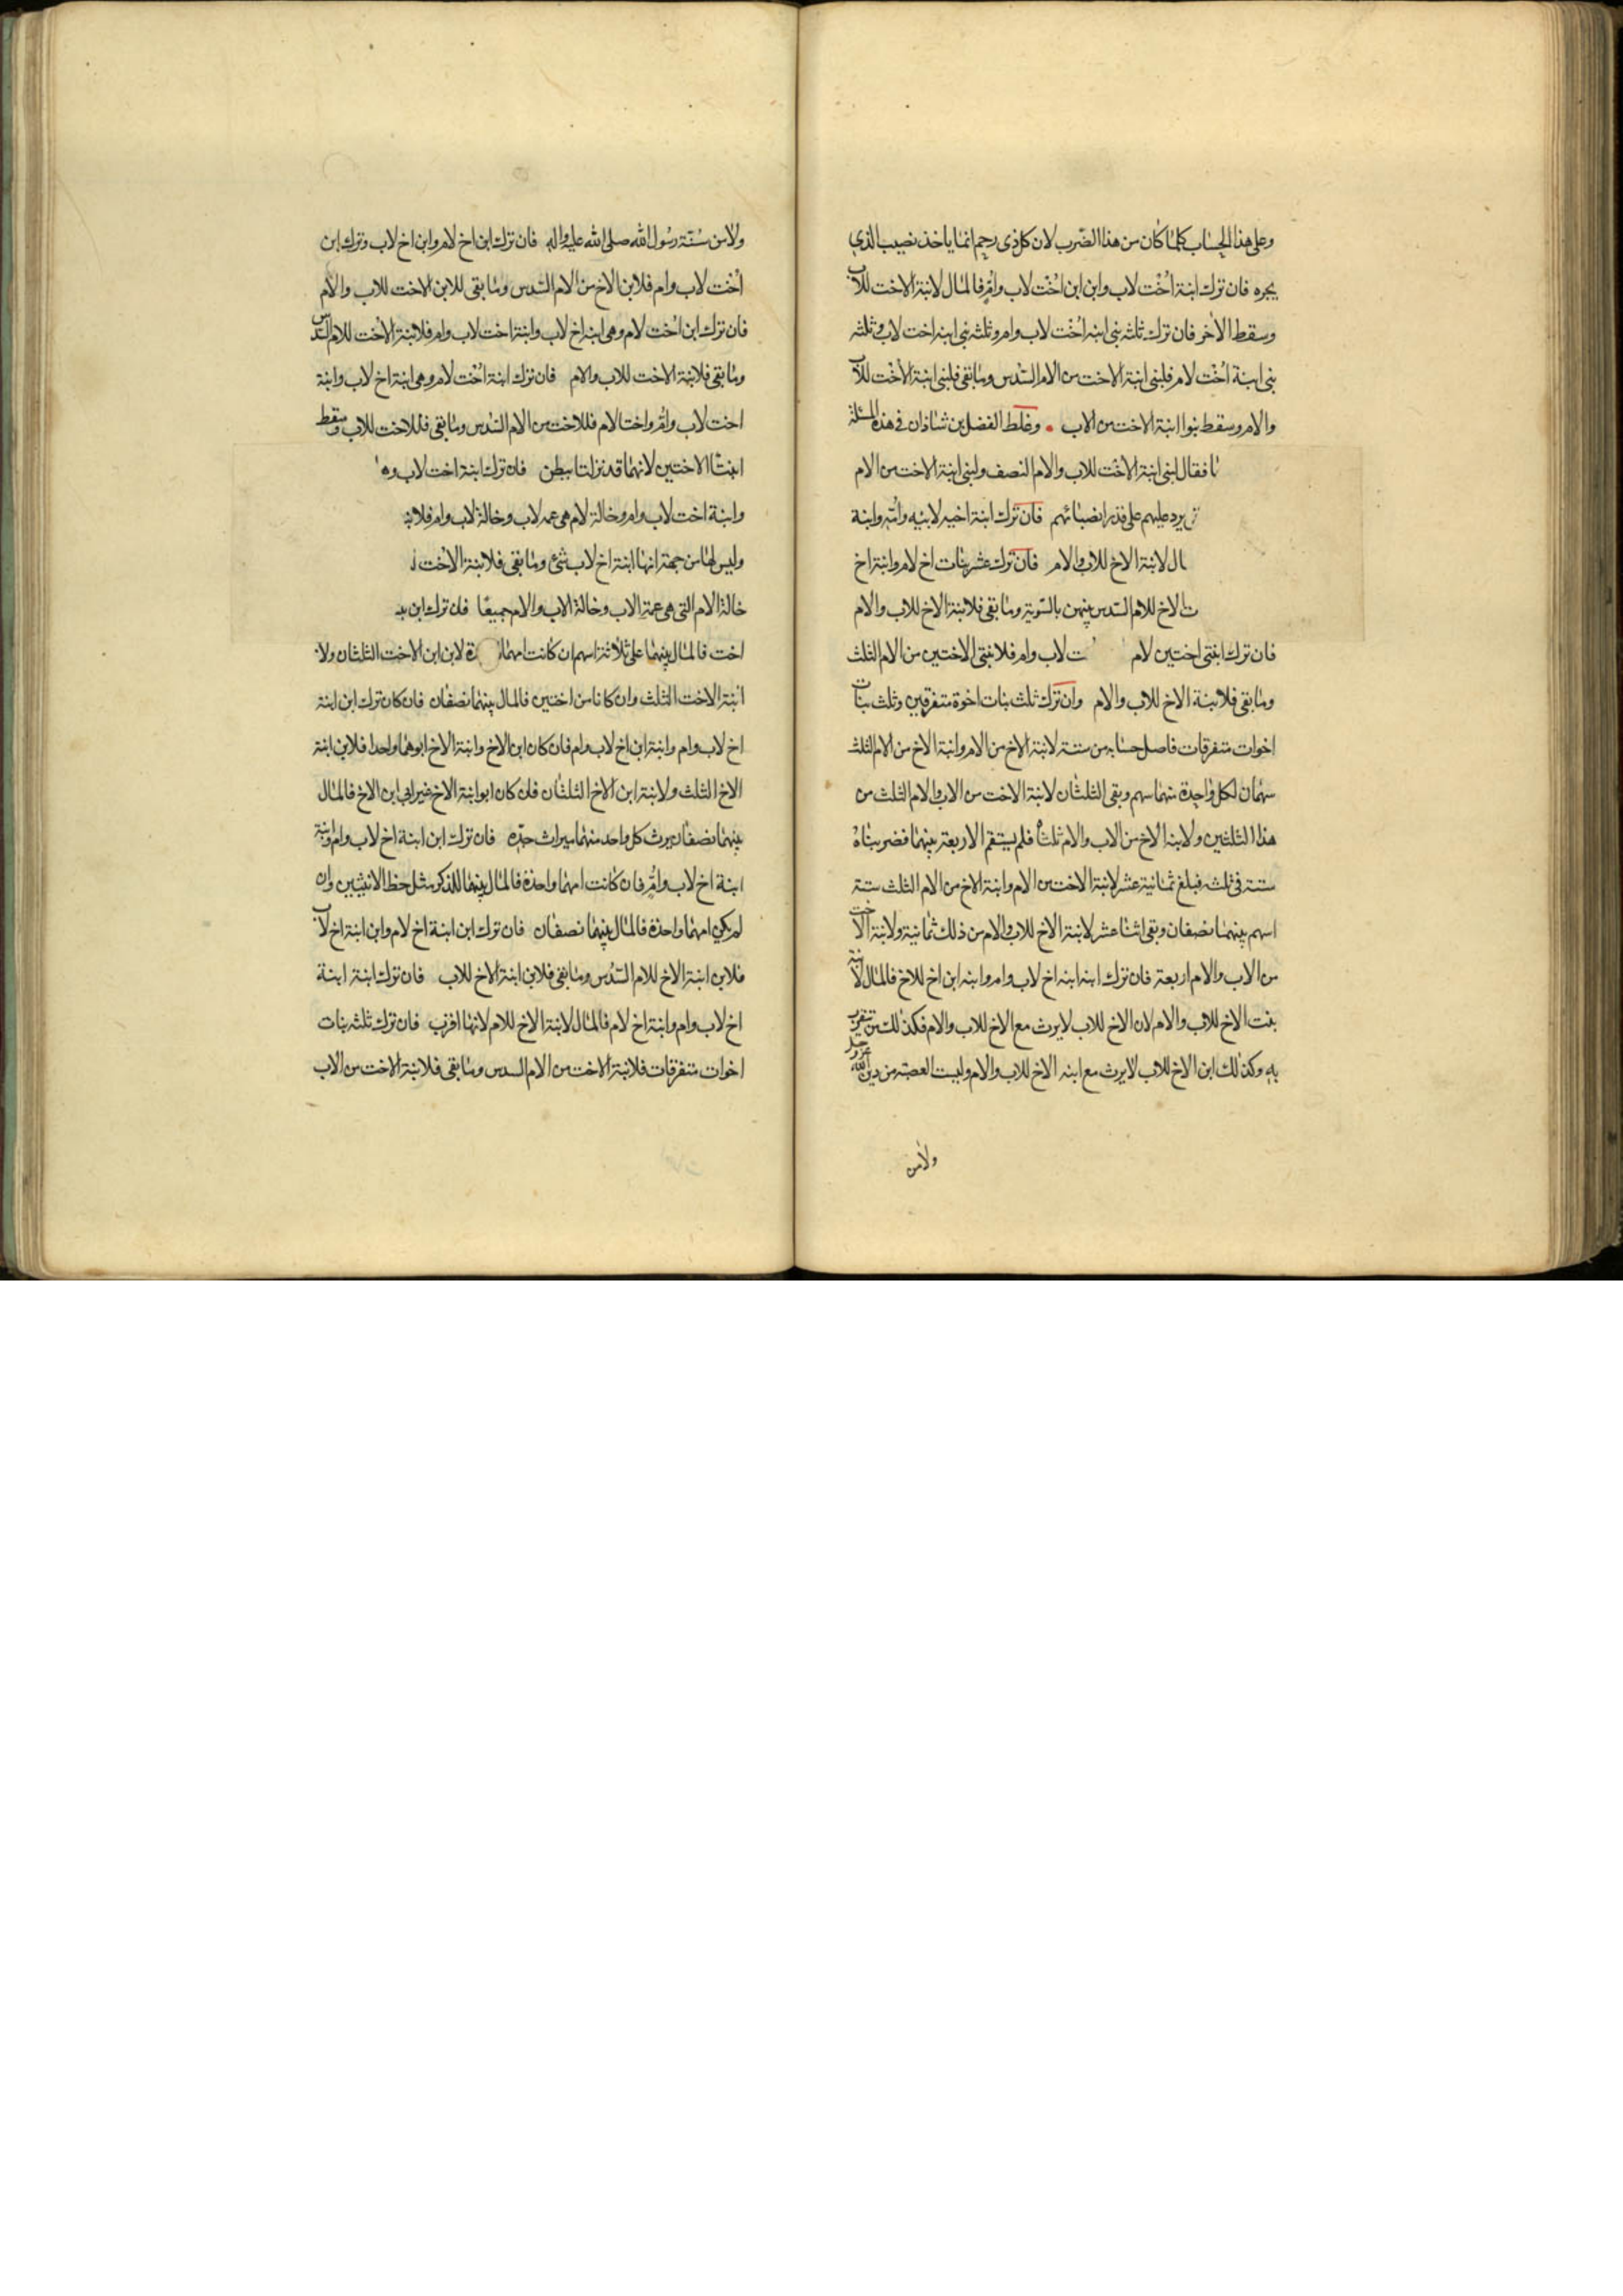 وعلى هذا الحساب كلما كان من هذا الضرب لان كل ذى رحم انما ياخذ نصيب الذي
يجره فان ترك ابنة اخت لاب وابن ابن اخت لاب وام فالمال لابنة الاخت للاب
وسقط الاخر فان ترك ثلثه بنى ابنه اخت لاب وام وثلثه بنى ابنه اخت لاب وثلثه
بنى ابنة اخت لام فلبنى ابنة الاخت من الام السدس وما بقى فلبنى ابنة الاخت للاب
والام وسقط بنوا ابنة الاخت من الاب وغلط الفضل بن شاذان في هذه المسئلة
فقال لبنى ابنة الاخت للاب والام النصف ولبنى ابنة الاخت من الام
يرد عليهم على قدر انصبائهم فان ترك ابنة اخيه لابيه وامه وابنة
ال لابنة الاخ للاب والام فان ترك عشر بنات اخ لام وابنة اخ
ت الاخ للام السدس بينهن بالسوية وما بقى فلابنة الاخ للاب والام
فان ترك ابنتى اختين لام ت لاب وام فلابنتى الاختين من الام الثلث
وما بقى فلابنة الاخ للاب والام وان ترك ثلث بنات اخوة متفرقين وثلث بنات
اخوات متفرقات فاصل حسابه من ستة لابنة الاخ من الام وابنة الاخ من الام الثلث
سهمان لكل واحدة منهما سهم وبقى الثلثان لابنة الاخت من الاب والام الثلث من
هذا الثلثين ولابنه الاخ من الاب والام ثلثاه فلم يستقم الاربعة بينهما فضربناه
ستة فى ثلثه فبلغ ثمانية عشر لابنة الاخت من الام وابنة الاخ من الام الثلث ستة
اسهم بينهما نصفان وبقى اثنا عشر لابنة الاخ للاب والام من ذلك ثمانية ولابنة الاخت
من الاب والام اربعة فان ترك ابنه ابنه اخ لاب وام وابنه ابن اخ للاخ فالمال لابنة
بنت الاخ للاب والام لان الاخ للاب لا يرث مع الاخ للاب والام فكذلك من يتقرب
به وكذلك ابن الاخ للاب لا يرث مع ابنه الاخ للاب والام وليست العصبة من دين الله عز وجل
ولا من
ولا من سنة رسول الله صلى الله عليه واله فان ترك ابن اخ لام وابن اخ لاب وترك ابن
اخت لاب وام فلابن الاخ من الام السدس وما بقى للابن الاخت للاب والام
فان ترك ابن اخت لام وهى ابنه اخ لاب وابنة اخت لاب وام فلابنة الاخت للام السدس
وما بقى فلابنة الاخت للاب والام فان ترك ابنة اخت لام وهى ابنة اخ لاب وابنة
اخت لاب وام واختا لام فللاخت من الام السدس وما بقى فللاخت للاب وسقط
ابنتا الاختين لانهما قد نزلتا ببطن فان ترك ابنة اخت لاب
وابنة اخت لاب وام وخالة لام هى عمه لاب وخالة لاب وام فلابنة
وليس لها من جهة انها ابنة اخ لاب شئ وما بقى فلابنة الاخت
خالة الام التى هى عمة الاب وخالة الاب والام جميعا فان ترك ابن
اخت فالمال بينهما على ثلاثة اسهم ان كانت امهما ة لابن ابن الاخت الثلثان ولا
ابنة الاخت الثلث وان كانا من اختين فالمال بينهما نصفان فان كان ترك ابن ابنة
اخ لاب وام وابنة ابن اخ لاب وام فان كان ابن الاخ وابنة الاخ ابوهما واحدا فلابن ابنة
الاخ الثلث ولابنة ابن الاخ الثلثان فان كان ابو ابنة الاخ غير ابي ابن الاخ فالمال
بينهما نصفان يرث كل واحد منهما ميراث جده فان ترك ابن ابنة اخ لاب وام وابنة
ابنة اخ لاب وام فان كانت امهما واحدة فالمال بينهما للذكر مثل حظ الانثيين وان
لم يكن امهما واحدة فالمال بينهما نصفان فان ترك ابن ابنة اخ لام وابن ابنة اخ لاب
فلابن ابنة الاخ للام السدس وما بقى فلابن ابنة الاخ للاب فان ترك ابنة ابنة
اخ لاب وام وابنة اخ لام فالمال لابنة الاخ للام لانها اقرب فان ترك ثلثه بنات
اخوات متفرقات فلابنة الاخت من الام السدس وما بقى فلابنة الاخت من الاب